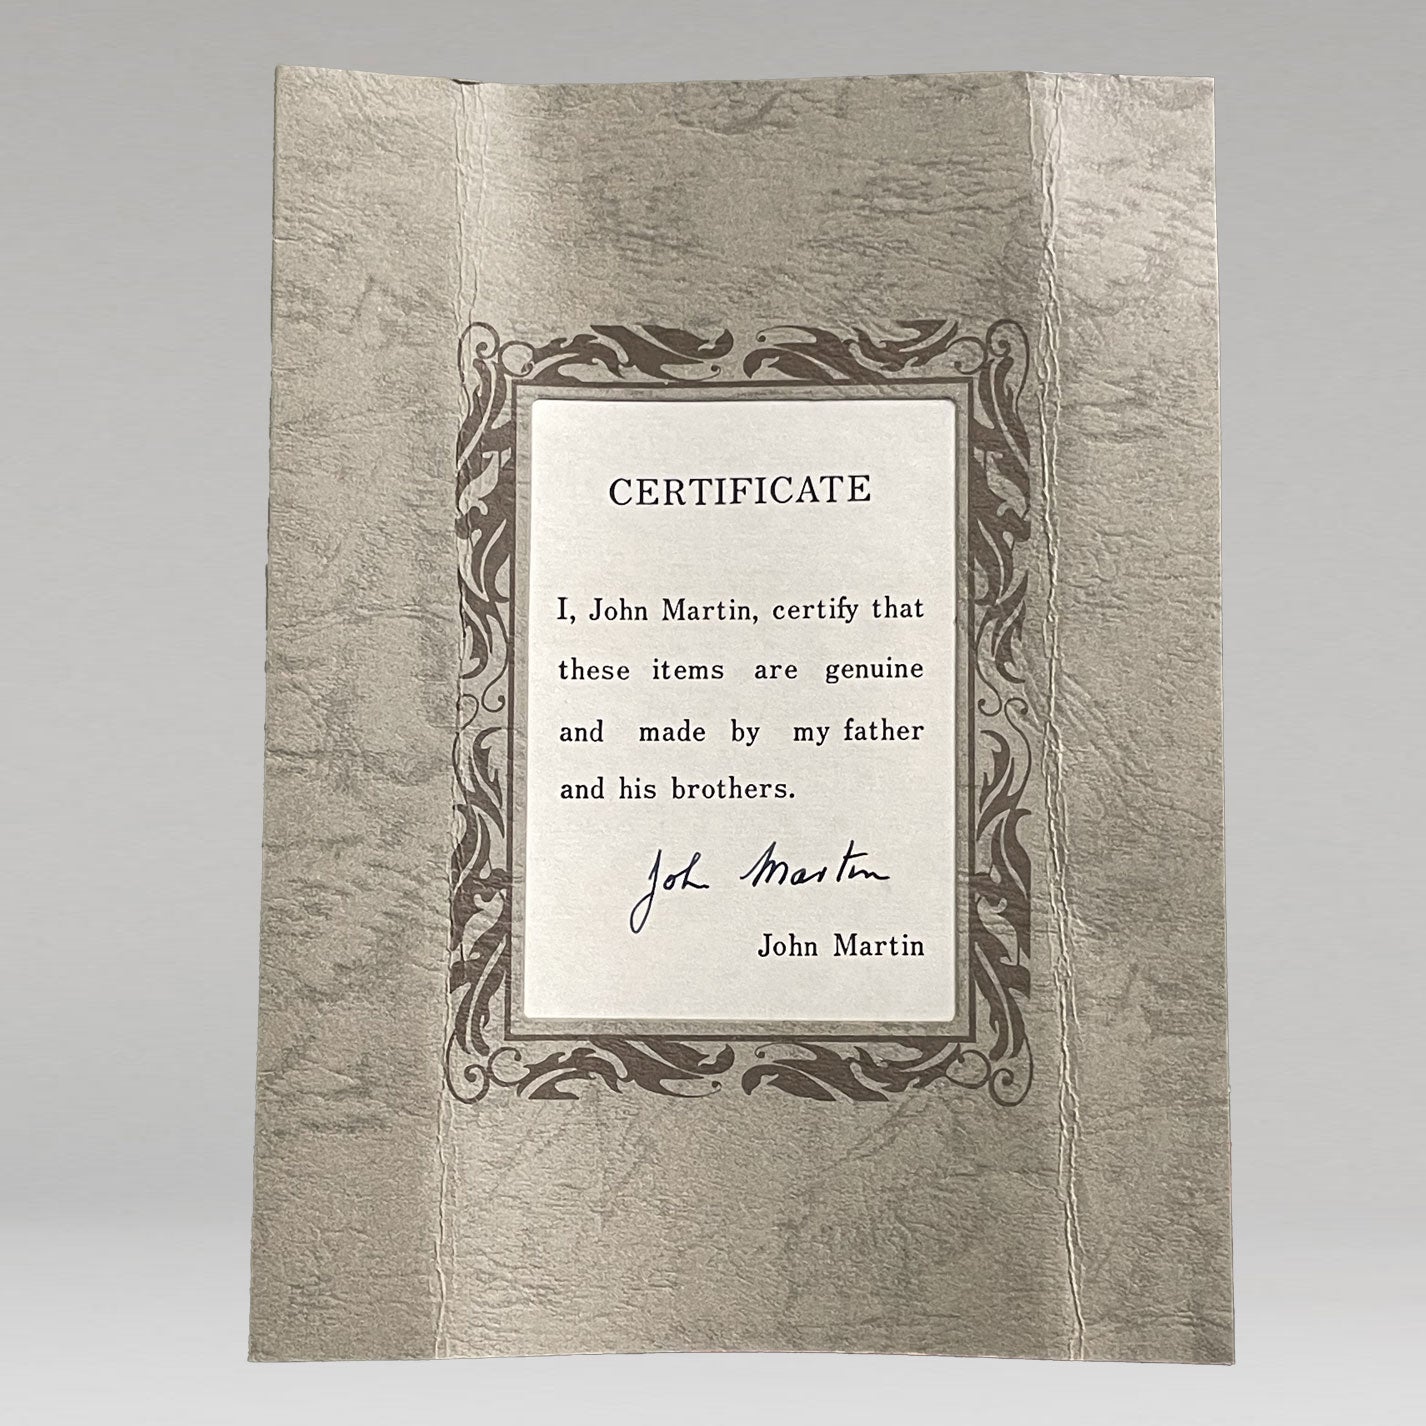 CERTIFICATE
I, John Martin, certify that
these items are genuine
and made by my father
and his brothers.
John Martin
John Martin